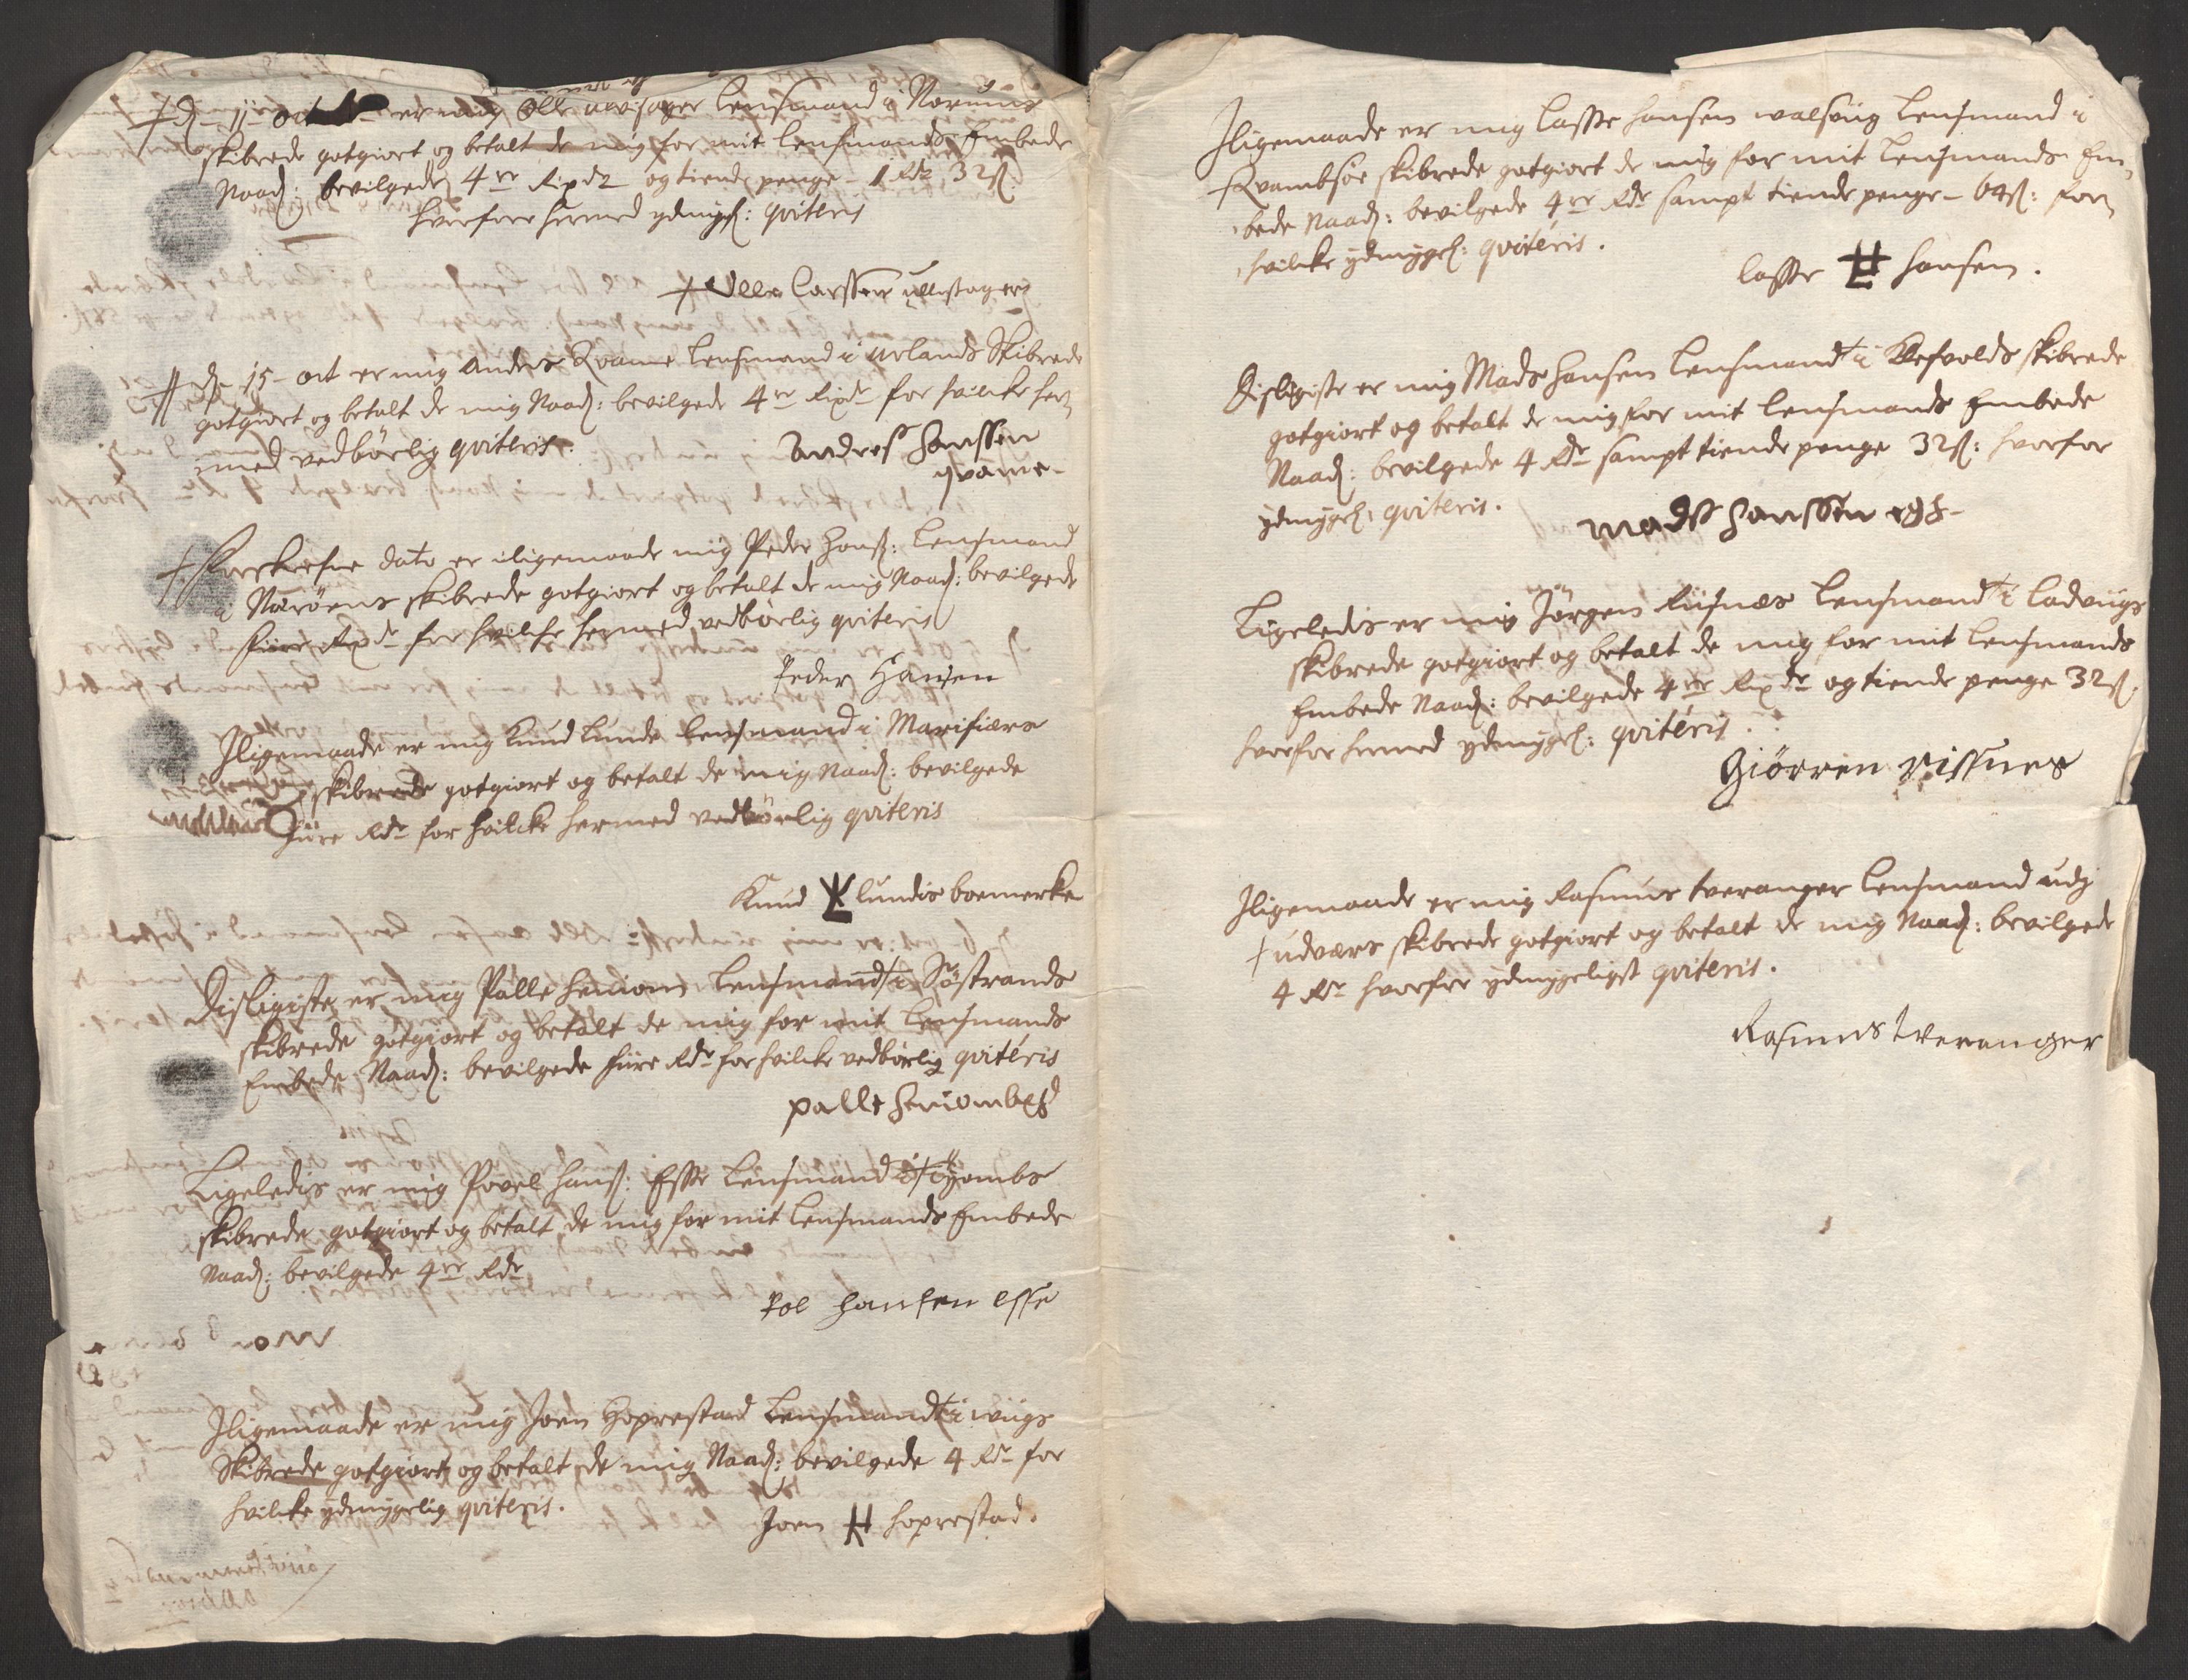 + D. 11 oct er mig Olle Lensmand i Norums
skibrede gotgiort og betalt de mig for mit Lensmands Embede
Naad: bevilgede 4re Rixdr og tiende penge - 1 Rdr 32 ß:
hvorfore hermed ydmygl: qviteris
Olle Larssen ullestager
D. 15 - oct er mig Anders Kvame Lensmand i Urlands Skibrede
gotgiort og betalt de mig Naad: bevilgede 4re Rixdr for hvilcke her,
med vedbörlig qviteris.
Andres Hanssen
qvame -
+ dato er iligemaade mig Peder Hanß: Lensmand
i Næröens skibrede gotgiort og betalt de mig Naad: bevilgede
fiire Rixdr for hvilcke hermed vedbörlig qviteris
Peder Hansen
Iligemaade er mig Knud Lunde Lensmand i Marifiærs
skibrede gotgiort og betalt de mig Naad: bevilgede
fiire Rdr for hvilcke hermed vedbörlig qviteris
Knud Lundis boemercke
Disligiste er mig Palle Henions Lensmand i Söstrands
skibrede gotgiort og betalt de mig for mit Lensmands
Embede Naad: bevilgede fiire Rdr for hvilcke vedbörlig qviteris
palle Heniom
Ligeledis er mig Povel Hanß: Esse Lensmand i Tiyombs
skibrede gotgiort og betalt de mig for mit Lensmands Embede
Naad: bevilgede 4re Rdr
Pol Hansen Esse
Iligemaade er mig Joen Hoprestad Lensmand i wiigs
Skibrede gotgiort og betalt de mig Naad: bevilgede 4 Rdr for
hvilcke ydmygelig qviteris.
Joen Hoprestad.
Iligemaade er mig Lasse Hansen walsviig Lensmand i
Kvambsöe skibrede gotgiort de mig for mit Lensmands Em,
bede Naad: bevilgede 4re Rdr sampt tiende penge - 64 ß: for
hvilcke ydmygel: qviteris.
Lasse Hansen.
Disligiste er mig Mads Hansen Lensmand i Kefvolds skibrede
gotgiort og betalt de mig for mit Lensmands Embede
Naad: bevilgede 4 Rdr sampt tiende penge 32 ß: hvorfor
ydmygel: qviteris.
Madß Hanssen
Ligeledis er mig Jörgen Riisnæs Lensmand i Ladviigs
skibrede gotgiort og betalt de mig for mit Lensmands
Embede Naad: bevilgede 4re Rixdr og tiende penge 32 ß,
hvorfor hermed ydmygel: qviteris.
Giörren Rissnes
Iligemaade er mig Rasmus tveranger Lensmand udj
+ udværs skibrede gotgiort og betalt de mig Naad: bevilgede
4 Rdr hvorfor ydmygeligst qviteris.
Rasmus tveranger